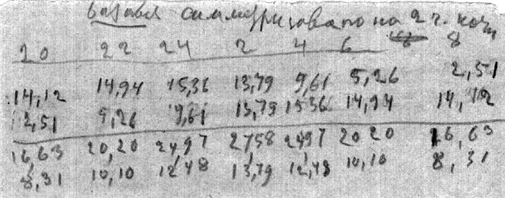 симметризовано на 2 ч. ночи
20 22 24 2 4 6 8
14,12 14,94 15,36 13,79 9,61 5,26 2,51
2,51 5,26 9,61 13,79 15,36 14,94 14,12
16,63 20,20 24,97 27,58 24,97 20,20 16,63
8,31 10,10 12,48 13,79 12,48 10,10 8,31